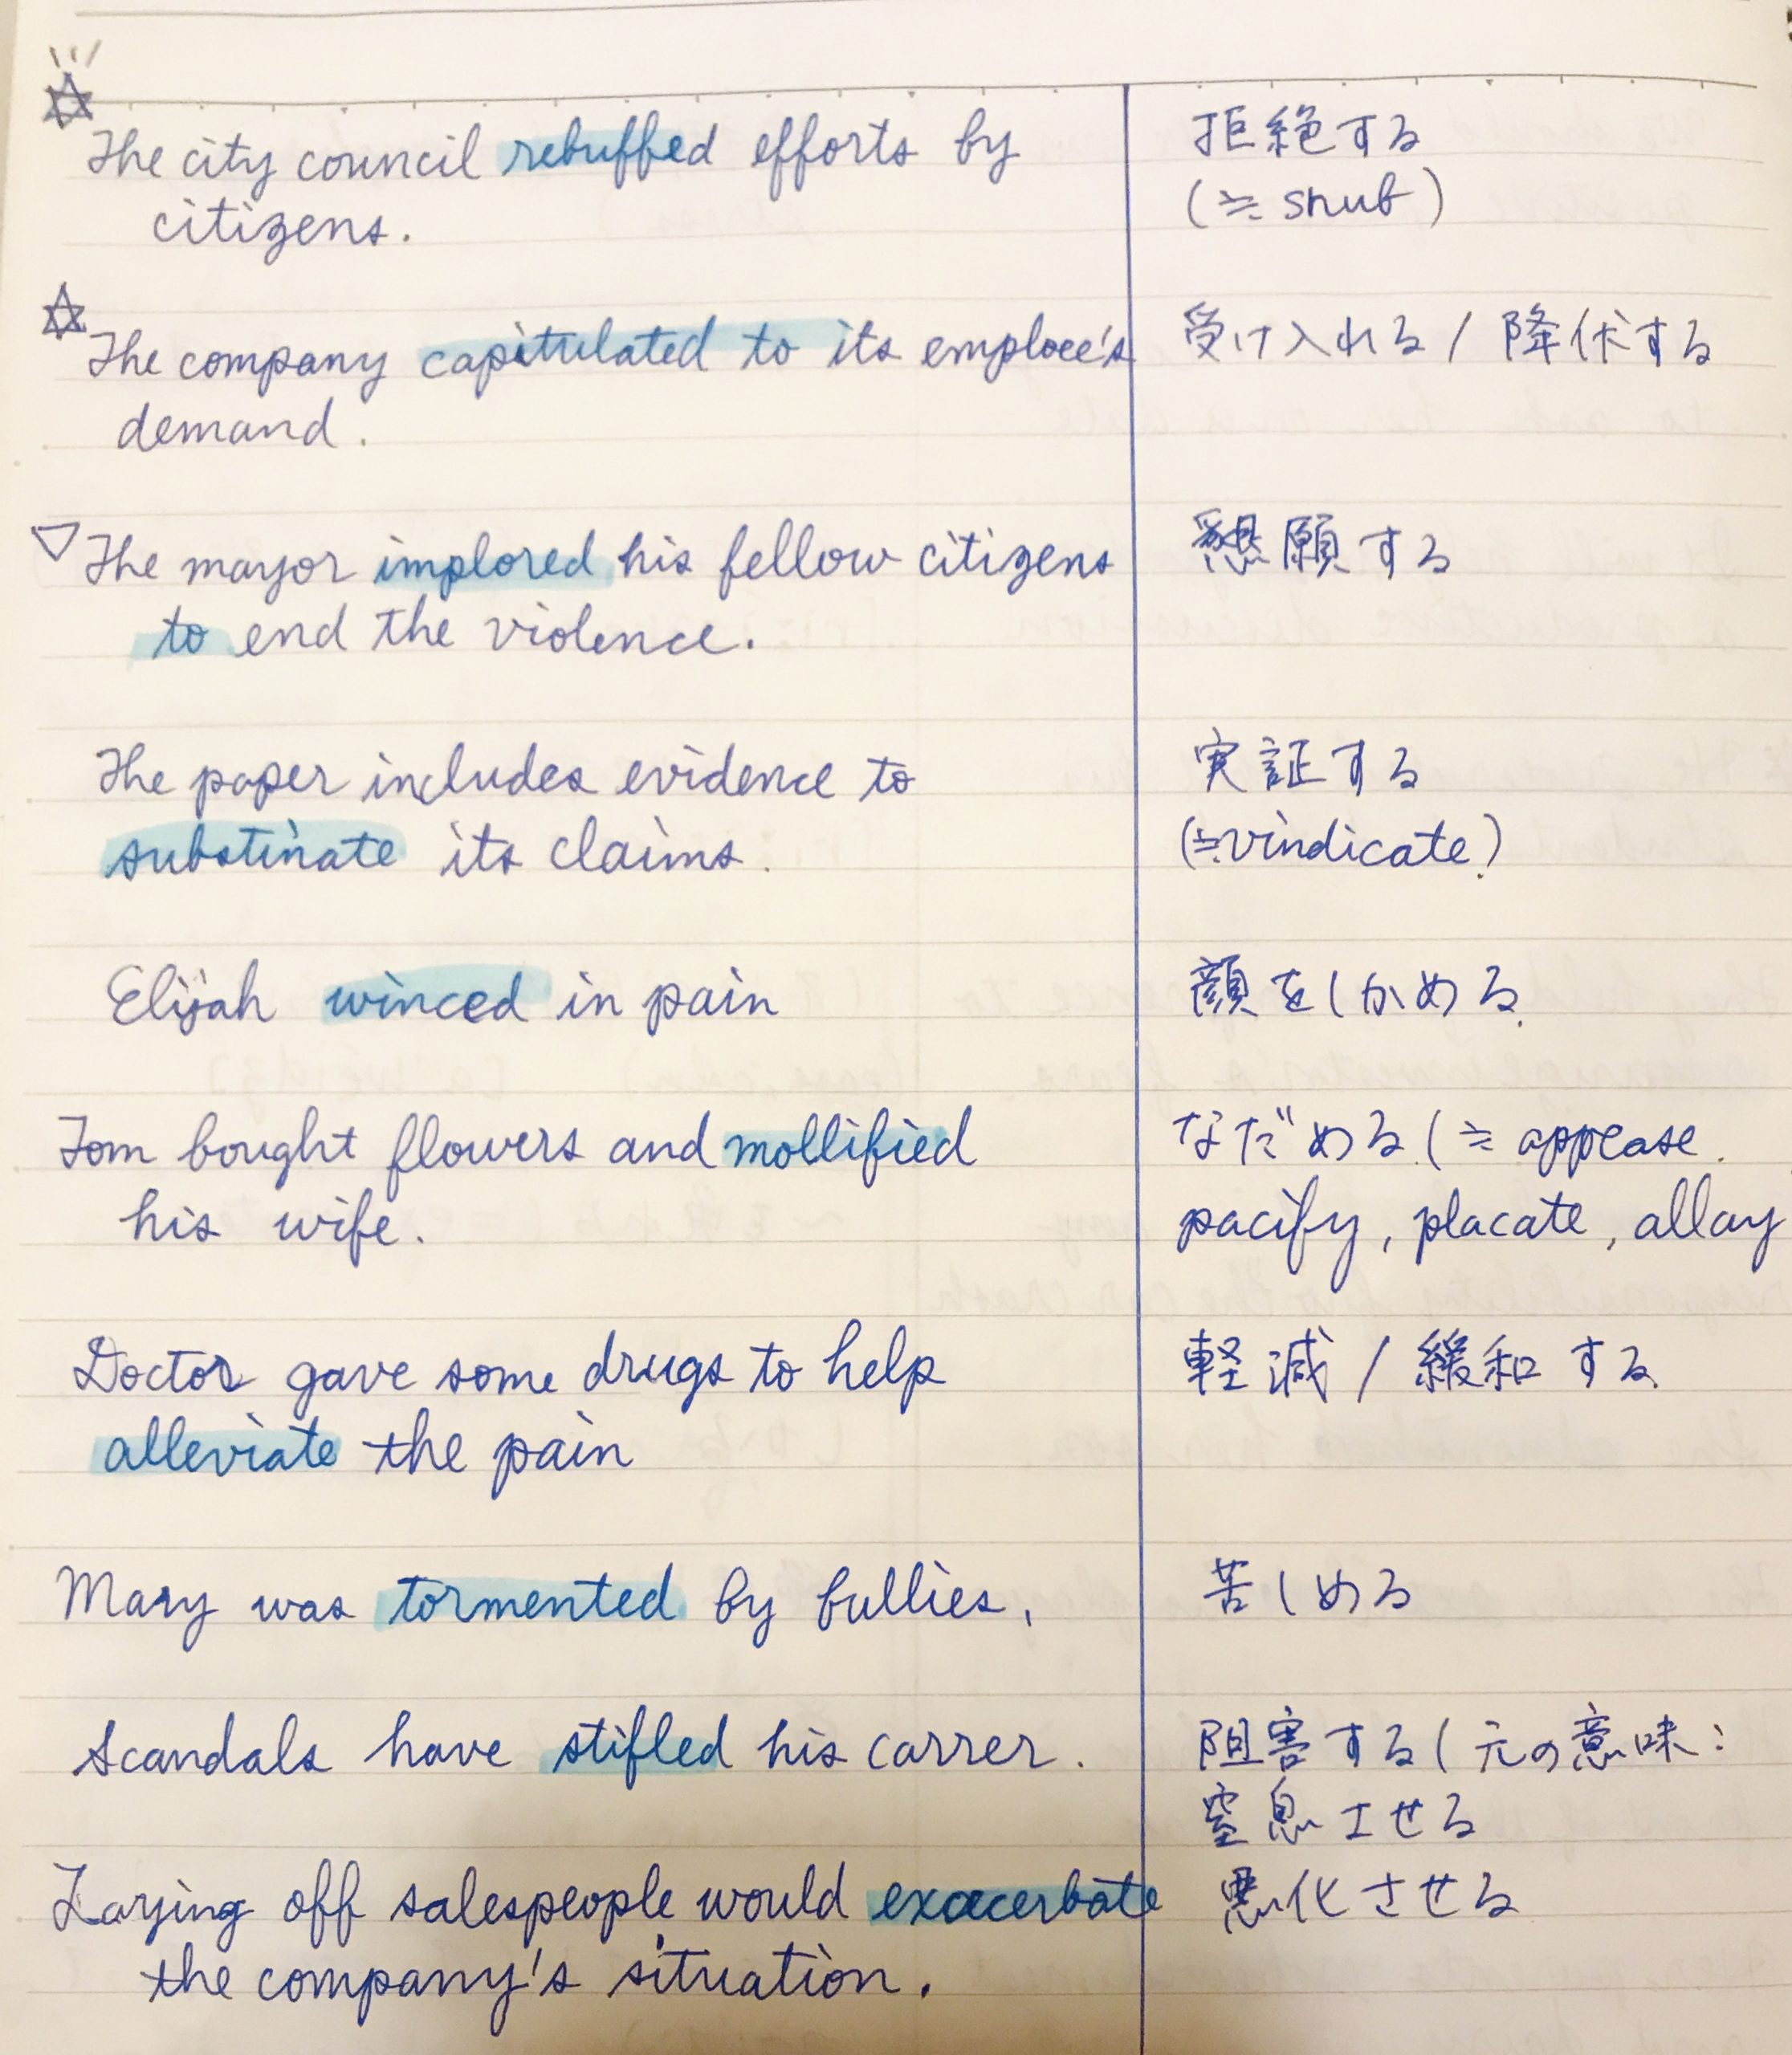 The city council rebuffed efforts by
citizens.
拒絶する
(≒ snub)
The company capitulated to its emploee's
demand.
受け入れる / 降伏する
The mayor implored his fellow citizens
to end the violence.
懇願する
The paper includes evidence to
substinate its claims.
実証する
(≒vindicate)
Elijah winced in pain
顔をしかめる
Tom bought flowers and mollified
his wife.
なだめる (≒ appease.
pacify, placate, allay
Doctor gave some drugs to help
alleviate the pain
軽減 / 緩和する
Mary was tormented by bullies.
苦しめる
Scandals have stifled his carrer.
阻害する (元の意味:
窒息させる
Laying off salespeople would exacerbate
the company's situation.
悪化させる